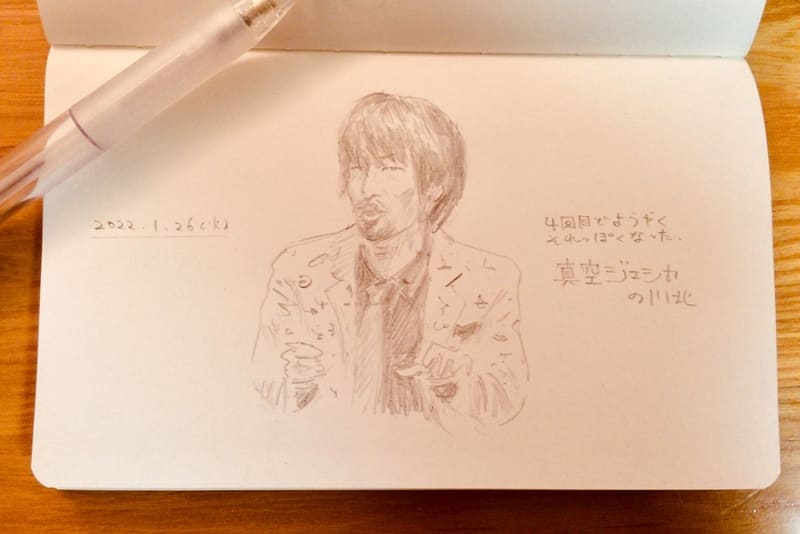 2022.1.26(水)
4回目でようやく
それっぽくなった.
真空ジェシカ
の川北